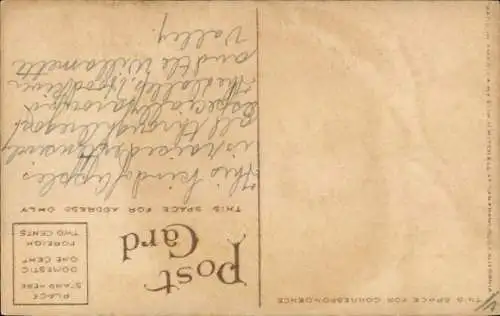 THIS SPACE FOR CORRESPONDENCE
Post
Card
PLACE
STAMP HERE
DOMESTIC
ONE CENT
FOREIGN
TWO CENTS
THIS SPACE FOR ADDRESS ONLY
This kind of apples
is raised extensively
all through Oregon
especially around
the dalles, Hood River
and the Willamette
Valley.